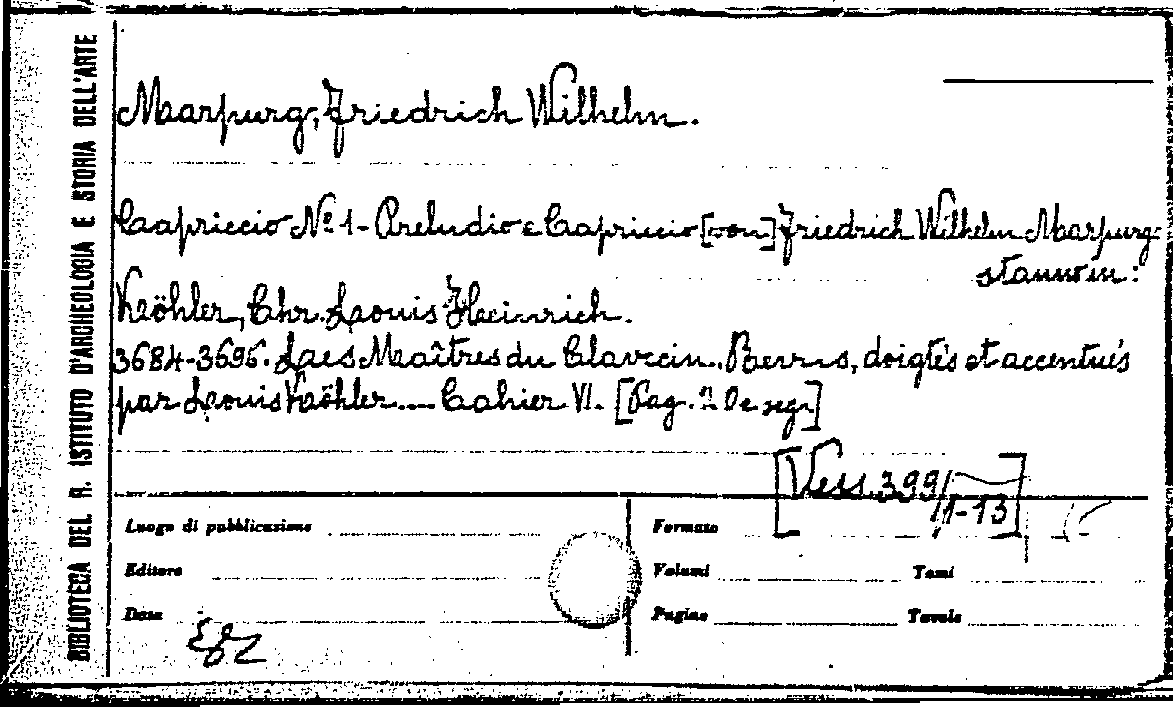 BIBLIOTECA DEL R. ISTITUTO D'ARCHEOLOGIA E STORIA DELL'ARTE
Marpurg, Friedrich Wilhelm.
Capriccio Nº 1 - Preludio e Capriccio [von] Friedrich Wilhelm Marpurg.
stanno in:
Köhler, Chr. Louis Heinrich.
3684-3696. Les Maîtres du Clavecin. Revus, doigtés et accentués
par Louis Köhler.... Cahier VI. [Pag. 2 e seg.]
[Vess. 399/1-13]
Luogo di pubblicazione
Formato
Editore
Volumi
Tomi
Data
Pagine
Tavole